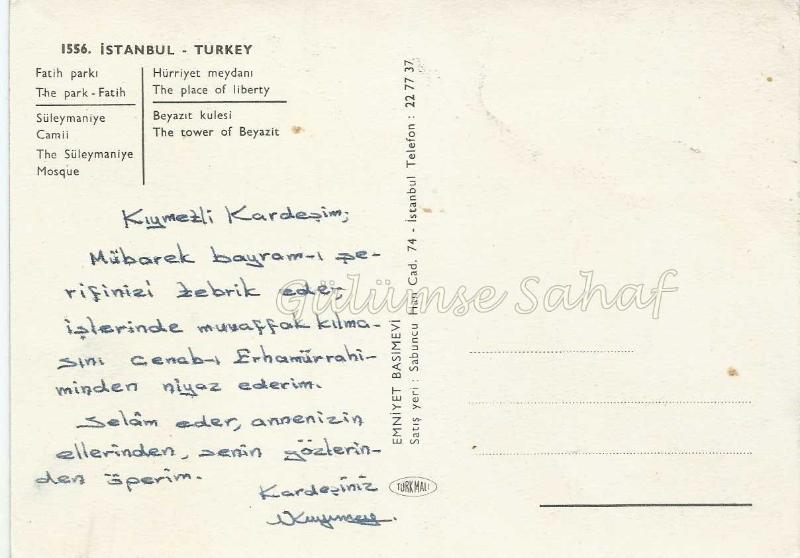 1556. İSTANBUL - TURKEY
Fatih parkı
The park - Fatih
Süleymaniye
Camii
The Süleymaniye
Mosque
Hürriyet meydanı
The place of liberty
Beyazıt kulesi
The tower of Beyazit
Kıymetli Kardeşim;
Mübarek bayram-ı şe-
rifinizi tebrik eder,
işlerinde muvaffak kılma-
sını Cenab-ı Erhamürrahi-
minden niyaz ederim.
Selâm eder, annenizin
ellerinden, senin gözlerin-
den öperim.
Kardeşiniz
EMNİYET BASIMEVİ
Satış yeri : Sabuncu Han Cad. 74 - İstanbul Telefon : 22 77 37
TÜRK MALI
Gülümse Sahaf